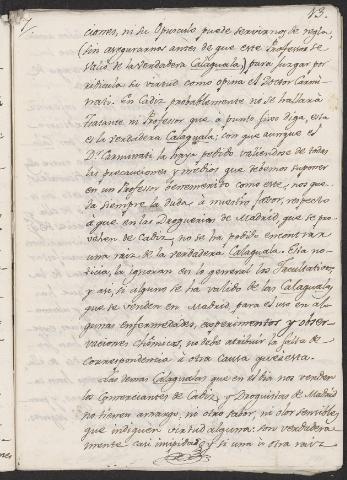 7. 13.
ciones, ni su Opusculo puede servirnos de regla,
(sin asegurarnos antes de que este Profesor se
valió de la verdadera Calaguala) para juzgar por
ridicula su virtud como opina el Doctor Carmi-
nati. En Cadiz probablemente no se hallará
tratante ni Profesor que a punto fixo diga, esta
es la verdadera Calaguala; con que aunque el
Dr. Carminati la haya pedido valiendose de todas
las precauciones y medios que debemos suponer
en un Profesor benemerito como este, nos que-
da siempre la duda à nuestro favor, respecto
à que en las Droguerias de Madrid, que se pro-
vehen de Cadiz, no se ha podido encontrar
una raiz de la verdadera Calaguala. Esta no-
ticia, la ignoran en lo general los Facultativos,
y asi, si alguno se ha valido de las Calagualas
que se venden en Madrid para el uso en al-
gunas enfermedades, experimentos y obser-
vaciones chîmicas, no debe atribuir la falta de
correspondencia à otra causa que esta.
Las demas Calagualas que en el dia nos venden
los Comerciantes de Cadiz, y Droguistas de Madrid
no tienen amargo, ni otro sabor, ni olor sensibles
que indiquen virtud alguna: son verdadera
mente casi insipidas; y si una ù otra raiz